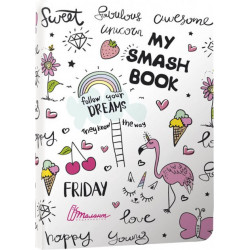 Sweet fabulous awesome
unicorn
MY
SMASH
BOOK
follow your
DREAMS
they know the way
FRIDAY
Талант
love
happy
young